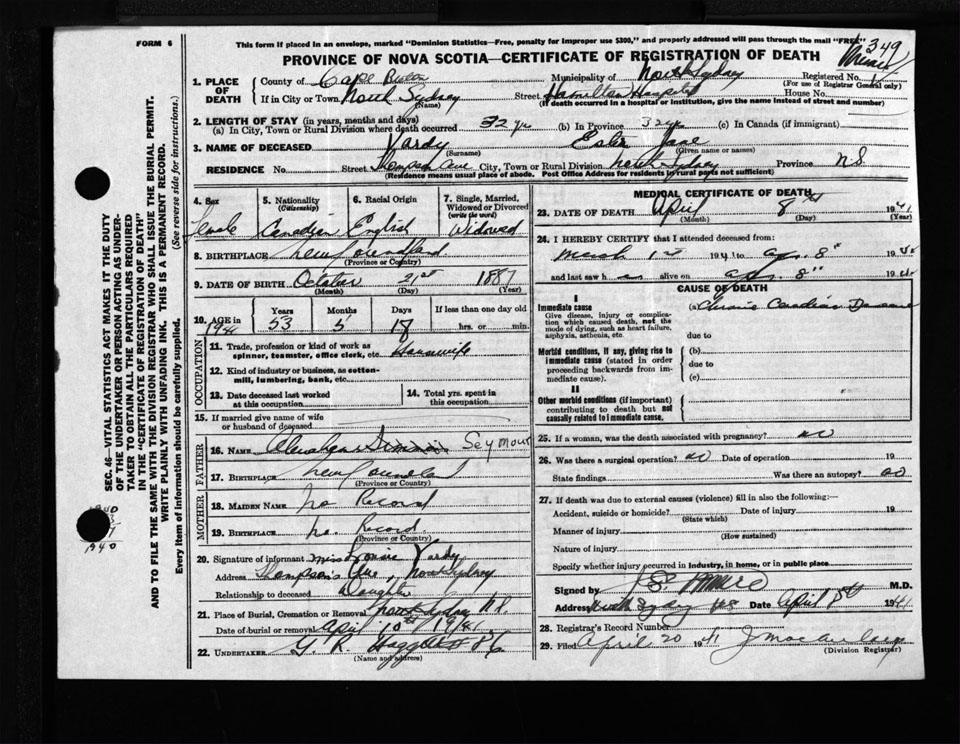 FORM 6
This form if placed in an envelope, marked "Dominion Statistics—Free, penalty for improper use $300," and properly addressed will pass through the mail "FREE"
349
PROVINCE OF NOVA SCOTIA—CERTIFICATE OF REGISTRATION OF DEATH
1. PLACE OF DEATH
County of Cape Breton Municipality of North Sydney Registered No.
(For use of Registrar General only)
If in City or Town North Sydney Street Hamilton Hospital House No.
(Name) (If death occurred in a hospital or institution, give the name instead of street and number)
2. LENGTH OF STAY (in years, months and days)
(a) In City, Town or Rural Division where death occurred 32 yrs (b) In Province 32 yrs (c) In Canada (if immigrant)
3. NAME OF DECEASED Vardy Jane
(Surname) (Given name or names)
RESIDENCE No. Street Thompson Ave City, Town or Rural Division North Sydney Province N.S.
(Residence means usual place of abode. Post Office Address for residents in rural parts not sufficient)
4. Sex Female
5. Nationality (Citizenship) Canadian
6. Racial Origin English
7. Single, Married, Widowed or Divorced (write the word) Widowed
8. BIRTHPLACE Newfoundland
(Province or Country)
9. DATE OF BIRTH October 21st 1887
(Month) (Day) (Year)
10. AGE in 1941 Years 53 Months 5 Days 18 If less than one day old hrs. or min.
OCCUPATION
11. Trade, profession or kind of work as spinner, teamster, office clerk, etc. Housewife
12. Kind of industry or business, as cotton-mill, lumbering, bank, etc.
13. Date deceased last worked at this occupation
14. Total yrs. spent in this occupation
15. If married give name of wife or husband of deceased
FATHER
16. NAME Seymour
17. BIRTHPLACE Newfoundland
(Province or Country)
MOTHER
18. MAIDEN NAME No Record
19. BIRTHPLACE No Record
(Province or Country)
20. Signature of informant Miss Vardy
Address Thompson's Ave, North Sydney
Relationship to deceased Daughter
21. Place of Burial, Cremation or Removal North Sydney N.S.
Date of burial or removal April 10th 1941
22. UNDERTAKER G. R. Haggett
(Name and address)
MEDICAL CERTIFICATE OF DEATH
23. DATE OF DEATH April 8th 1941
(Month) (Day) (Year)
24. I HEREBY CERTIFY that I attended deceased from:
March 1st 1941 to Ap. 8th 19
and last saw h alive on Ap. 8th 19
CAUSE OF DEATH
I
Immediate cause
Give disease, injury or complication which caused death, not the mode of dying, such as heart failure, asphyxia, asthenia, etc.
(a) Chronic Cardiac Disease
due to
Morbid conditions, if any, giving rise to immediate cause (stated in order proceeding backwards from immediate cause).
(b)
due to
(c)
II
Other morbid conditions (if important) contributing to death but not causally related to immediate cause.
25. If a woman, was the death associated with pregnancy? no
26. Was there a surgical operation? no Date of operation 19
State findings Was there an autopsy? no
27. If death was due to external causes (violence) fill in also the following:—
Accident, suicide or homicide? Date of injury 19
(State which)
Manner of injury
(How sustained)
Nature of injury
Specify whether injury occurred in industry, in home, or in public place
Signed by M.D.
Address North Sydney NS Date April 1941
28. Registrar's Record Number
29. Filed April 20 1941
(Division Registrar)
SEC. 46—VITAL STATISTICS ACT MAKES IT THE DUTY
OF THE UNDERTAKER OR PERSON ACTING AS UNDER-
TAKER TO OBTAIN ALL THE PARTICULARS REQUIRED
IN THE "CERTIFICATE OF REGISTRATION OF DEATH"
AND TO FILE THE SAME WITH THE DIVISION REGISTRAR WHO SHALL ISSUE THE BURIAL PERMIT.
WRITE PLAINLY WITH UNFADING INK. THIS IS A PERMANENT RECORD.
Every item of information should be carefully supplied. (See reverse side for instructions.)
1940